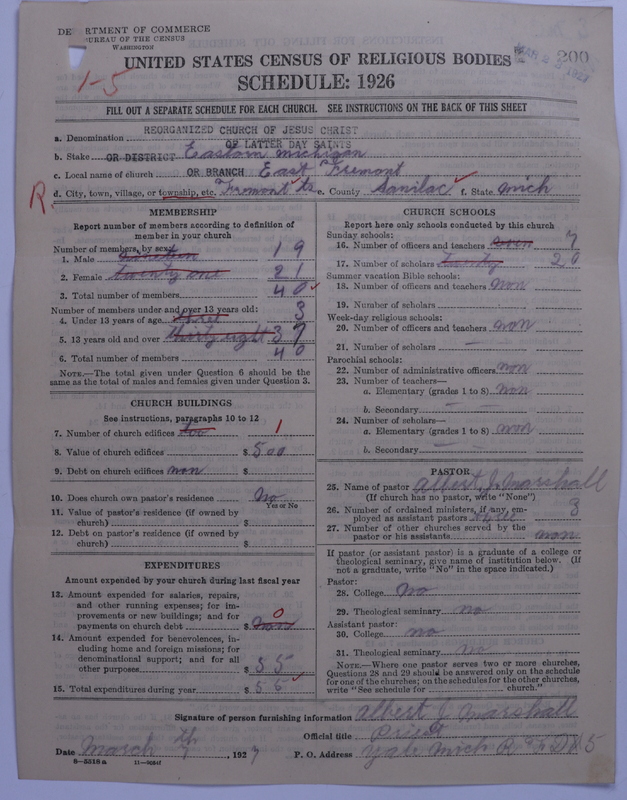 DE RTMENT OF COMMERCE
BUREAU OF THE CENSUS
WASHINGTON
200
1-5
UNITED STATES CENSUS OF RELIGIOUS BODIES
SCHEDULE: 1926
FILL OUT A SEPARATE SCHEDULE FOR EACH CHURCH. SEE INSTRUCTIONS ON THE BACK OF THIS SHEET
a. Denomination REORGANIZED CHURCH OF JESUS CHRIST
OF LATTER DAY SAINTS
b. Stake OR DISTRICT Eastern Michigan
c. Local name of church OR BRANCH East Fremont
R. d. City, town, village, or township, etc. Fremont e. County Sanilac f. State Mich
MEMBERSHIP
Report number of members according to definition of
member in your church
Number of members, by sex:
1. Male nineteen 19
2. Female twenty one 21
3. Total number of members 40
Number of members under and over 13 years old:
4. Under 13 years of age three 3
5. 13 years old and over thirty eight 37
6. Total number of members 40
NOTE.—The total given under Question 6 should be the
same as the total of males and females given under Question 3.
CHURCH BUILDINGS
See instructions, paragraphs 10 to 12
7. Number of church edifices 1
8. Value of church edifices $ 500
9. Debt on church edifices non $
10. Does church own pastor's residence No
Yes or No
11. Value of pastor's residence (if owned by
church) $
12. Debt on pastor's residence (if owned by
church) $
EXPENDITURES
Amount expended by your church during last fiscal year
13. Amount expended for salaries, repairs,
and other running expenses; for im-
provements or new buildings; and for
payments on church debt $ non 0
14. Amount expended for benevolences, in-
cluding home and foreign missions; for
denominational support; and for all
other purposes $ 55
15. Total expenditures during year $ 55
CHURCH SCHOOLS
Report here only schools conducted by this church
Sunday schools:
16. Number of officers and teachers seven 7
17. Number of scholars twenty 20
Summer vacation Bible schools:
18. Number of officers and teachers non
19. Number of scholars
Week-day religious schools:
20. Number of officers and teachers non
21. Number of scholars —
Parochial schools:
22. Number of administrative officers non
23. Number of teachers—
a. Elementary (grades 1 to 8) non
b. Secondary —
24. Number of scholars—
a. Elementary (grades 1 to 8) non
b. Secondary —
PASTOR
25. Name of pastor Albert J. Marshall
(If church has no pastor, write "None")
26. Number of ordained ministers, if any, em-
ployed as assistant pastors three 3
27. Number of other churches served by the
pastor or his assistants non
If pastor (or assistant pastor) is a graduate of a college or
theological seminary, give name of institution below. (If
not a graduate, write "No" in the space indicated.)
Pastor:
28. College No
29. Theological seminary no
Assistant pastor:
30. College no
31. Theological seminary no
NOTE.—Where one pastor serves two or more churches,
Questions 28 and 29 should be answered only on the schedule
for one of the churches; on the schedules for the other churches,
write "See schedule for church."
Signature of person furnishing information Albert J Marshall
Official title Priest
Date March 7th, 1927 P. O. Address Yale Mich R F D # 5
8-5518a 11-9054f